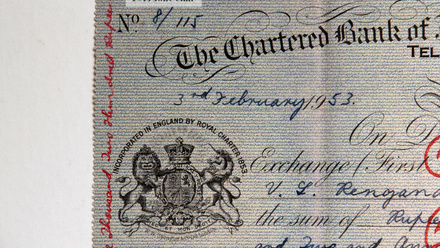 No 8/115
The Chartered Bank of
TEL
3rd February, 1953.
INCORPORATED IN ENGLAND BY ROYAL CHARTER 1853
On D
Exchange (First
V. L. Rengan
the sum of Rupe
and Two and
Thousand Two Hundred Rupee